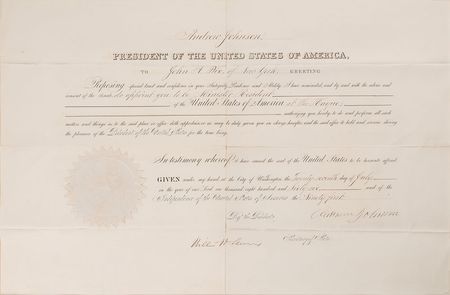 Andrew Johnson,
PRESIDENT OF THE UNITED STATES OF AMERICA,
TO John A Dix, of New York, GREETING
Reposing special trust and confidence in your Integrity, Prudence and Ability I have nominated and by and with the advice and
consent of the Senate do appoint you to be Minister Resident
of the United States of America at The Hague;
authorizing you hereby to do and perform all such
matters and things as to the said place or office doth appertain or may be duly given you in charge hereafter and the said office to hold and exercise during
the pleasure of the President of the United States for the time being.
In testimony whereof I have caused the seal of the United States to be hereunto affixed
GIVEN under my hand at the City of Washington the day of July
in the year of our Lord one thousand eight hundred and Sixty six and of the
Independence of the United States of America the Ninety first.
By the President Andrew Johnson
Secretary of State